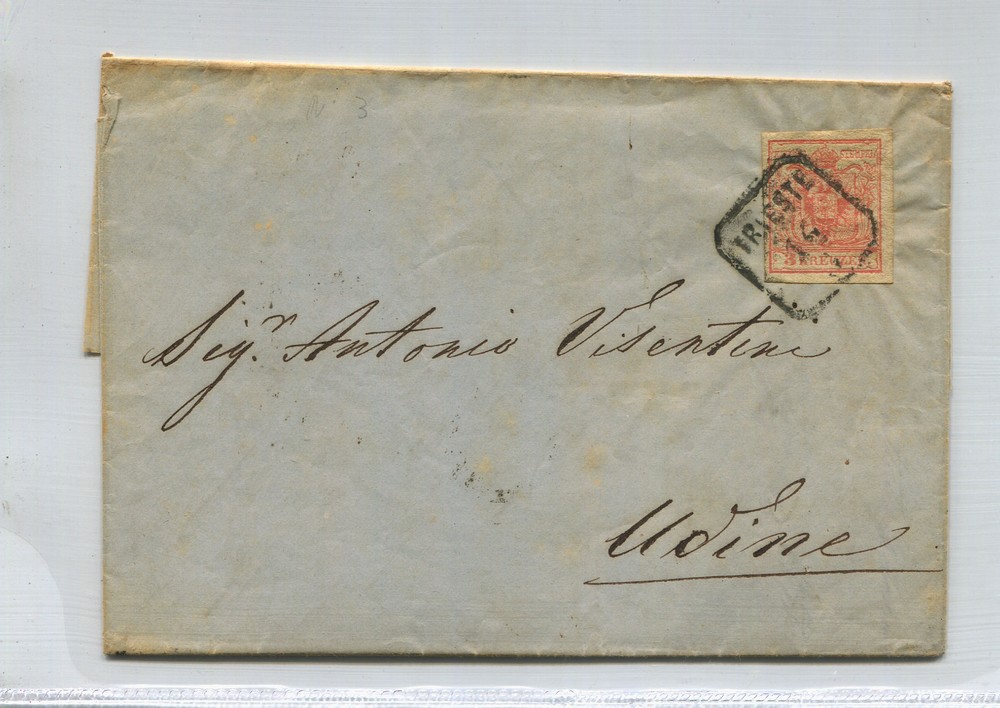 N° 3
STEMPEL
TRIESTE
3 KREUZER
Sig.r Antonio Visentini
Udine